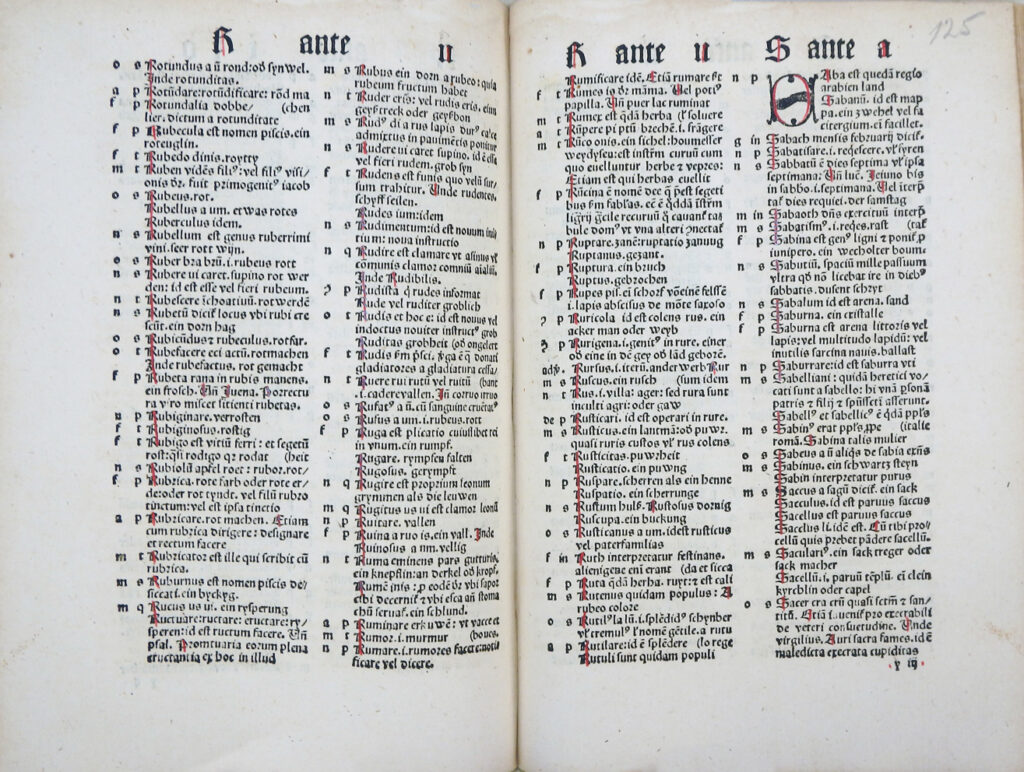 R ante u
o s Rotundus a ū rond: oƀ synwel.
Inde rotunditas.
a p Rotūdare: rotūdificare: rōd ma
f p Rotundalia dobbe/ (chen
lier. dictum a rotunditate
f p Rubecula est nomen piscis. ein
roteuglin.
f t Rubedo dinis. roytty
m t Ruben vidēs filiꝰ: vel filiꝰ visi/
onis dr. fuit primogenitꝰ iacob
o s Rubeus. rot.
Rubellus a um. etwas rotes
Ruberculus idem.
n s Rubellum est genus ruberrimi
vini. seer rott wijn.
o s Ruber bra brū: i. rubeus rott
n s Rubere ui caret. supino rot wer
den: id est esse vel fieri rubeum.
n t Rubescere īchoatiuū. rot werdē
n s Rubetū dicit locus vbi rubi cre
scūt. ein dorn hag
o s Rubicūdus ꝛ rubeculus. rotfar.
o t Rubefacere eci actū. rotmachen
Inde rubefactus. rot gemacht
f p Rubeta rana in rubis manens.
ein frosch. Uñ Juena. Porrectu
ra viro miscet sitienti rubetas.
n p Rubiginare. verrosten
f t Rubiginosus. rostig
f t Rubigo est vitiū ferri: et segetū
rost: qsi rodigo qꝛ rodat (heit
n s Rubiolū apfel roet: rubor. rot/
f p Rubrica. rote farb oder rote er/
de: oder rot tyndt. vel filū rubro
tinctum: vel est ipsa tinctio
a p Rubricare. rot machen. Etiam
cum rubrica dirigere: designare
et rectum facere
m t Rubricator est ille qui scribit cū
rubrica.
m s Ruburnus est nomen piscis de/
siccati. ein byckyg.
m q Rucus us ui. ein rysperung
Ructuare: ructare: eructare: ry/
speren: id est ructum facere. Uñ
psal. Promtuaria eorum plena
eructantia ex hoc in illud
m s Rubus ein dorn a rubeo: quia
rubeum fructum habet
n t Ruder eris: vel rudis eris. eins
geyßtreck oder geyßbon
m s Rudꝰ di a rus lapis durꝰ calct
admittitus in pauimētis ponitur
n s Rudere ui caret supino. id ē esse
vel fieri rudem. grob syn
f t Rudens est funis quo velū sur/
sum trahitur. Unde rudentes.
schyff seilen.
Rudes ium: idem
n s Rudimentum: id est nouum iniu
tium: noua instructio
n q Rudire est clamare vt asinus vl
cōmunis clamor omniū aialiū.
Inde Rudibilis.
ꝯ p Rudista q rudes informat
Rude vel ruditer groblich
o t Rudis et hoc e: id est nouus vel
indoctus nouiter instructꝰ grob
Ruditas grobheit (oƀ ongelert
f t Rudis fm psci. vga ē q donati
gladiatores a gladiatura cessa/
n t Ruere rui rutū vel ruitū (bant
i. cadere vallen. In corruo irruo
o s Rufatꝰ a ū. cū sanguine cruētatꝰ
o s Rufus a um. i. rubeus. rott
f p Ruga est plicatio cuiuslibet rei
in vnum. ein rumpf.
Rugare. rympfen falten
Rugosus. gerympft
n q Rugire est proprium leonum
grymmen als die leuwen
m q Rugitus us ui est clamor leonū
n p Ruitare. vallen
f p Ruina a ruo is. ein vall. Inde
Ruinosus a nm. vellig
n t Ruma eminens pars gutturis.
ein knepflin: an der kel oƀ kropf.
Rumē inis: p eodē dr vbi sapor
cibi decernit ꝛ vbi esca añ stoma
chū seruat. ein schlund.
a p Ruminare erkuwē: vt vacce et
m t Rumor. i. murmur (boues.
n p Rumare. i. rumores facere: noti
ficare vel dicere.
125
R ante u S ante a
Rumificare idē. Etiā rumare est
f t Rumes is dr māma. Vel potiꝰ
papilla. Uñ puer lac ruminat
m t Rumex est qdā herba (ꝛ soluere
a t Rūpere pi ptū brechē. i. frāgere
m t Rūco onis. ein sichel: houmesser
weydyseu: est instrm curuū cum
quo euelluntur herbe ꝛ vepres:
Etiam est qui herbas euellit
f p Rūcina ē nomē dee q pest segeti
bus fm fablas. et ē ē qddā istrm
lignȳ gcile recuruū q cauant tas
bule domꝰ vt vna alteri ꝯnectat
n p Ruptare. zanē: ruptatio zanuug
Ruptanus. gezant.
f p Ruptura. ein bruch
Ruptus. gebrochen
f p Rupes pis. ei schorf voneinē felssē
i. lapis abscissus de mōte saxoso
ꝯ p Ruricola id est colens rus. ein
acker man oder weyb
ꝯ p Rurigena. i. genitꝰ in rure. einer
oƀ eine in dē gey oƀ lād geborē.
adv. Rursus. i. iterū. anderwerb Rur
m s Ruscus. ein rusch (sum idem
n t Rus. i. villa: ager: sed rura sunt
inculti agri: oder gaw
de p Rusticari. id est operari in rure.
m s Rusticus. ein lantmā: oƀ puwr.
quasi ruris custos vl rus colens
f t Rusticitas. puwrheit
Rusticatio. ein puwng
n p Ruspare. scherren als ein henne
Ruspatio. ein scherrunge
n s Rustum hulß. Rustosus dornig
Ruscupa. ein buckung
o s Rusticanus a um. id est rusticus
vel paterfamilias
f in Ruth interpretatur festinans.
alienigene enī erant (da et sicca
f p Ruta qdā herba. ruyt: ꝛ est cali
m s Rutenus quidam populus: A
rubeo colore
o s Rutilꝰ la lū. i. splēdidꝰ schynber
vl tremulꝰ ꝉ nomē gētile. a rutu
a p Rutilare: id ē splēdere (lo rege
Rutuli sunt quidam populi
n p SAba est quedā regio
arabien land
Sabanū. id est map
pa. ein zwehel vel fa
citergium. ei facillet.
g in Sabach mensis februarij dicit.
n p Sabatisare. i. reqescere. vl syren
n s Sabbatū ē dies septima vl ipsa
septimana: Uñ luc. Jeiuno bis
in sabbo. i. septimana. Vel iterp
tat dies requiei. der samstag
m in Sabaoth dñs exercituū interp
m s Sabatismꝰ. i. reqes. rast (tat
f p Sabina est genꝰ ligni ꝛ ponit p
iunipero. ein wecholter boum
n s Sabutū. spaciū mille passuum
vltra qƀ nō licebat ire in diebꝰ
sabbatis. dusent schryt
n s Sabalum id est arena. sand
f p Saburna. ein cristalle
f p Saburna est arena littoris vel
lapis: vel multitudo lapidū: vel
inutilis sarcina nauis. ballast
n p Saburrare: id est saburra vti
m s Sabelliani: quidā heretici vo/
cati sunt a sabello: hi vnā psonā
patris ꝛ filij ꝛ spūssctī asserunt.
Sabellꝰ et sabellicꝰ ē qdā ppls
m s Sabinꝰ erat ppls. ꝓpe (italie
romā. Sabina talis mulier
o s Sabeus a ū aliqs. de sabia exñs
m s Sabinus. ein schwartz steyn
Sabin interpretatur purus
m s Saccus a sagū dicit. ein sack
Sacculus. id est paruus saccus
Sacellus est paruus saccus
Saccellus li. idē est. Cū tibi pro/
celluū quis prebet pādere sacellū.
m s Sacularꝰ. ein sack treger oder
sack macher
Sacellū. i. paruū tēplū. ei clein
kyrchlin oder capel
o s Sacer cra crū quasi sctm ꝛ san/
titū. Etiā i. ucnis pro execrabili
de veteri consuetudine. Unde
virgilius. Auri sacra fames. id ē
maledicta execrata cupiditas
y iij